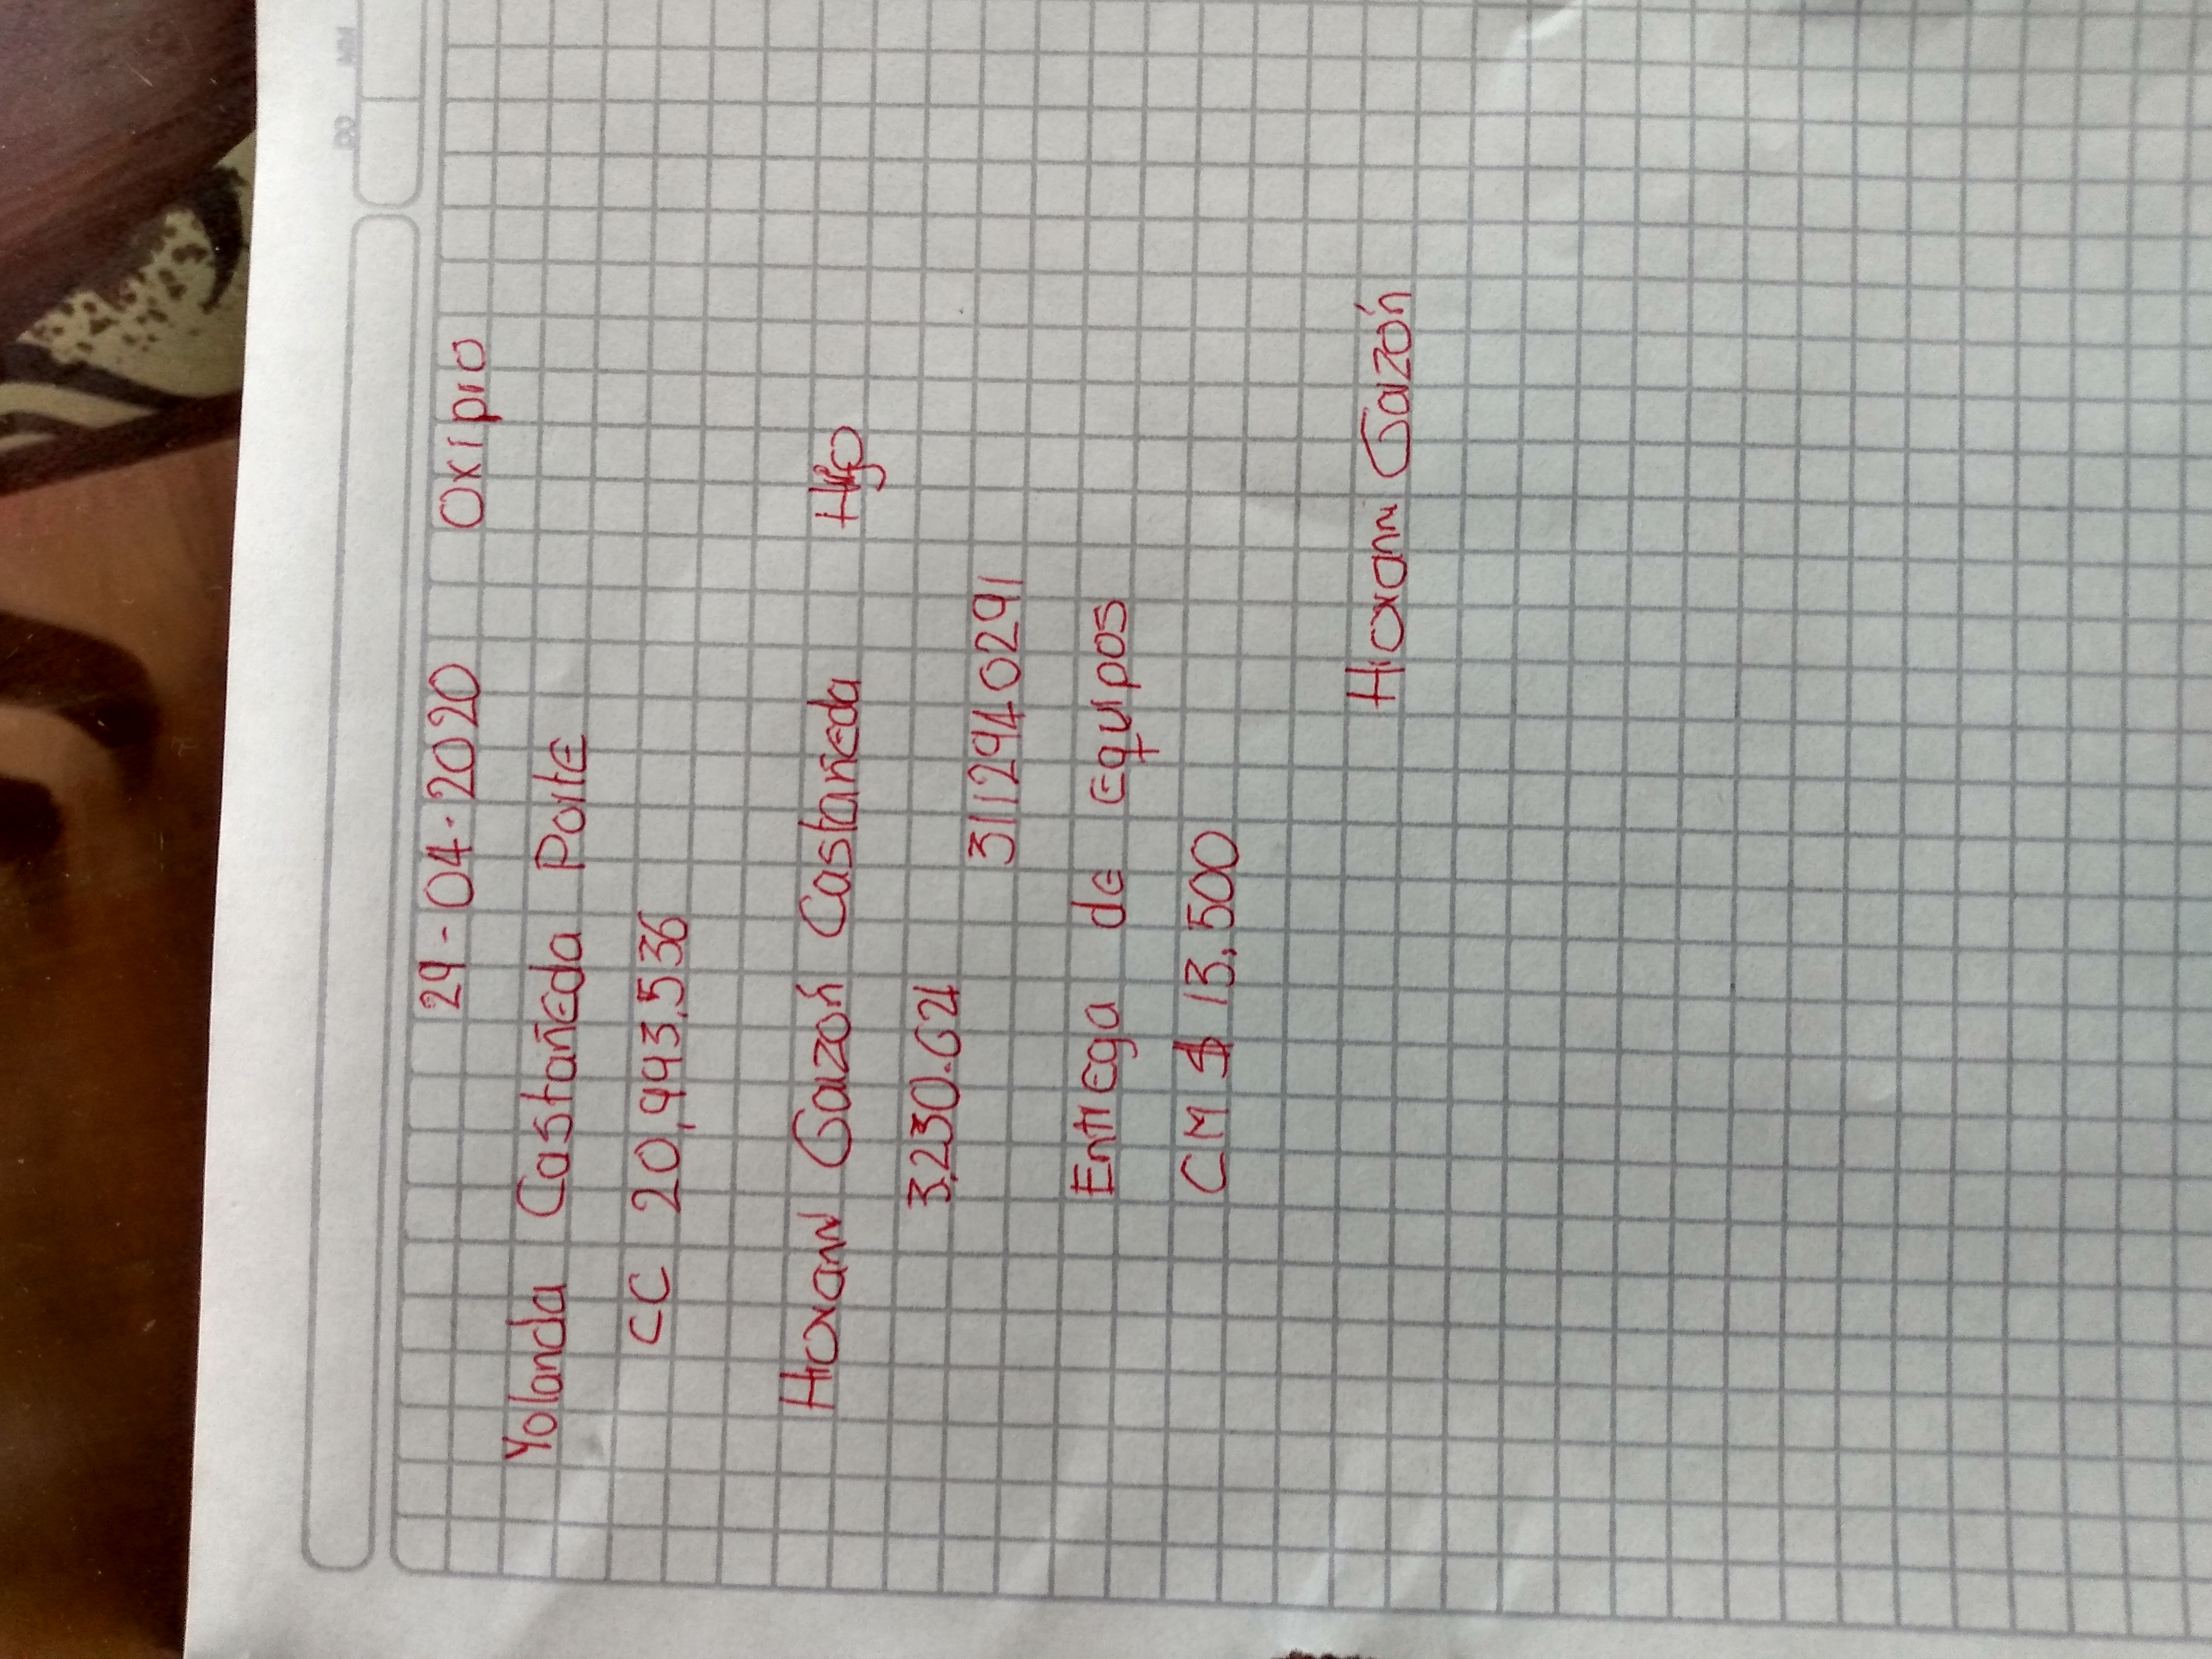 DD MM
29-04-2020 Oxipro
Yolanda Castañeda Parte
CC 20,443,536
Garzón Castañeda Hijo
3,230.621
3112940291
Entrega de Equipos
CM $ 13,500
Garzón